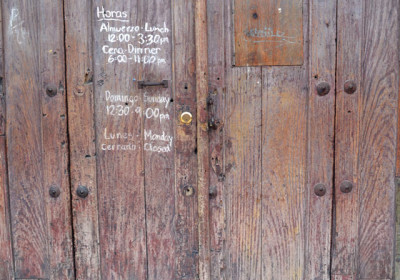 Horas
Almuerzo-Lunch
12:00 - 3:30pm
Cena-Dinner
6:00 - 11:00pm
Domingo Sunday
12:30-9:00pm
Lunes - Monday
Cerrado Closed